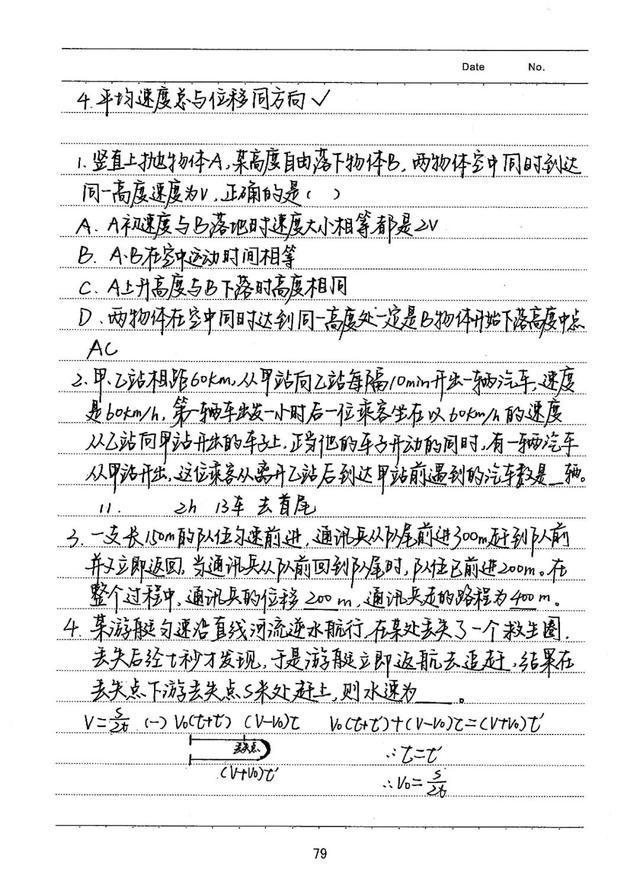 Date No.
4.平均速度总与位移同方向✓
1.竖直上抛物体A,某高度自由落下物体B,两物体空中同时到达
同一高度速度为V,正确的是( )
A. A初速度与B落地时速度大小相等都是2V
B. A.B在空中运动时间相等
C. A上升高度与B下落时高度相同
D.两物体在空中同时达到同一高度处一定是B物体开始下落高度中点
AC
2.甲、乙站相距60km,从甲站向乙站每隔10min开出一辆汽车,速度
是60km/h,第一辆车出发一小时后一位乘客坐在以60km/h的速度
从乙站向甲站开出的车子上,正当他的车子开动的同时,有一辆汽车
从甲站开出,这位乘客从离开乙站后到达甲站前遇到的汽车数是_辆。
11. 2h 13车 去首尾
3.一支长150m的队伍匀速前进,通讯兵从队尾前进300m赶到队前
并立即返回,当通讯兵从队前回到队尾时,队伍已前进200m。在
整个过程中,通讯兵的位移200m,通讯兵走的路程为400m。
4.某游艇匀速沿直线河流逆水航行,在某处丢失了一个救生圈,
丢失后经t秒才发现,于是游艇立即返航去追赶,结果在
丢失点下游丢失点S米处赶上,则水速为___。
V=s/2t (一) V₀(t+t′) (V-V₀)t V₀(t+t′)+(V-V₀)t=(V+V₀)t′
丢失点 ∴t=t′
(V+V₀)t′ ∴V₀=s/2t
79